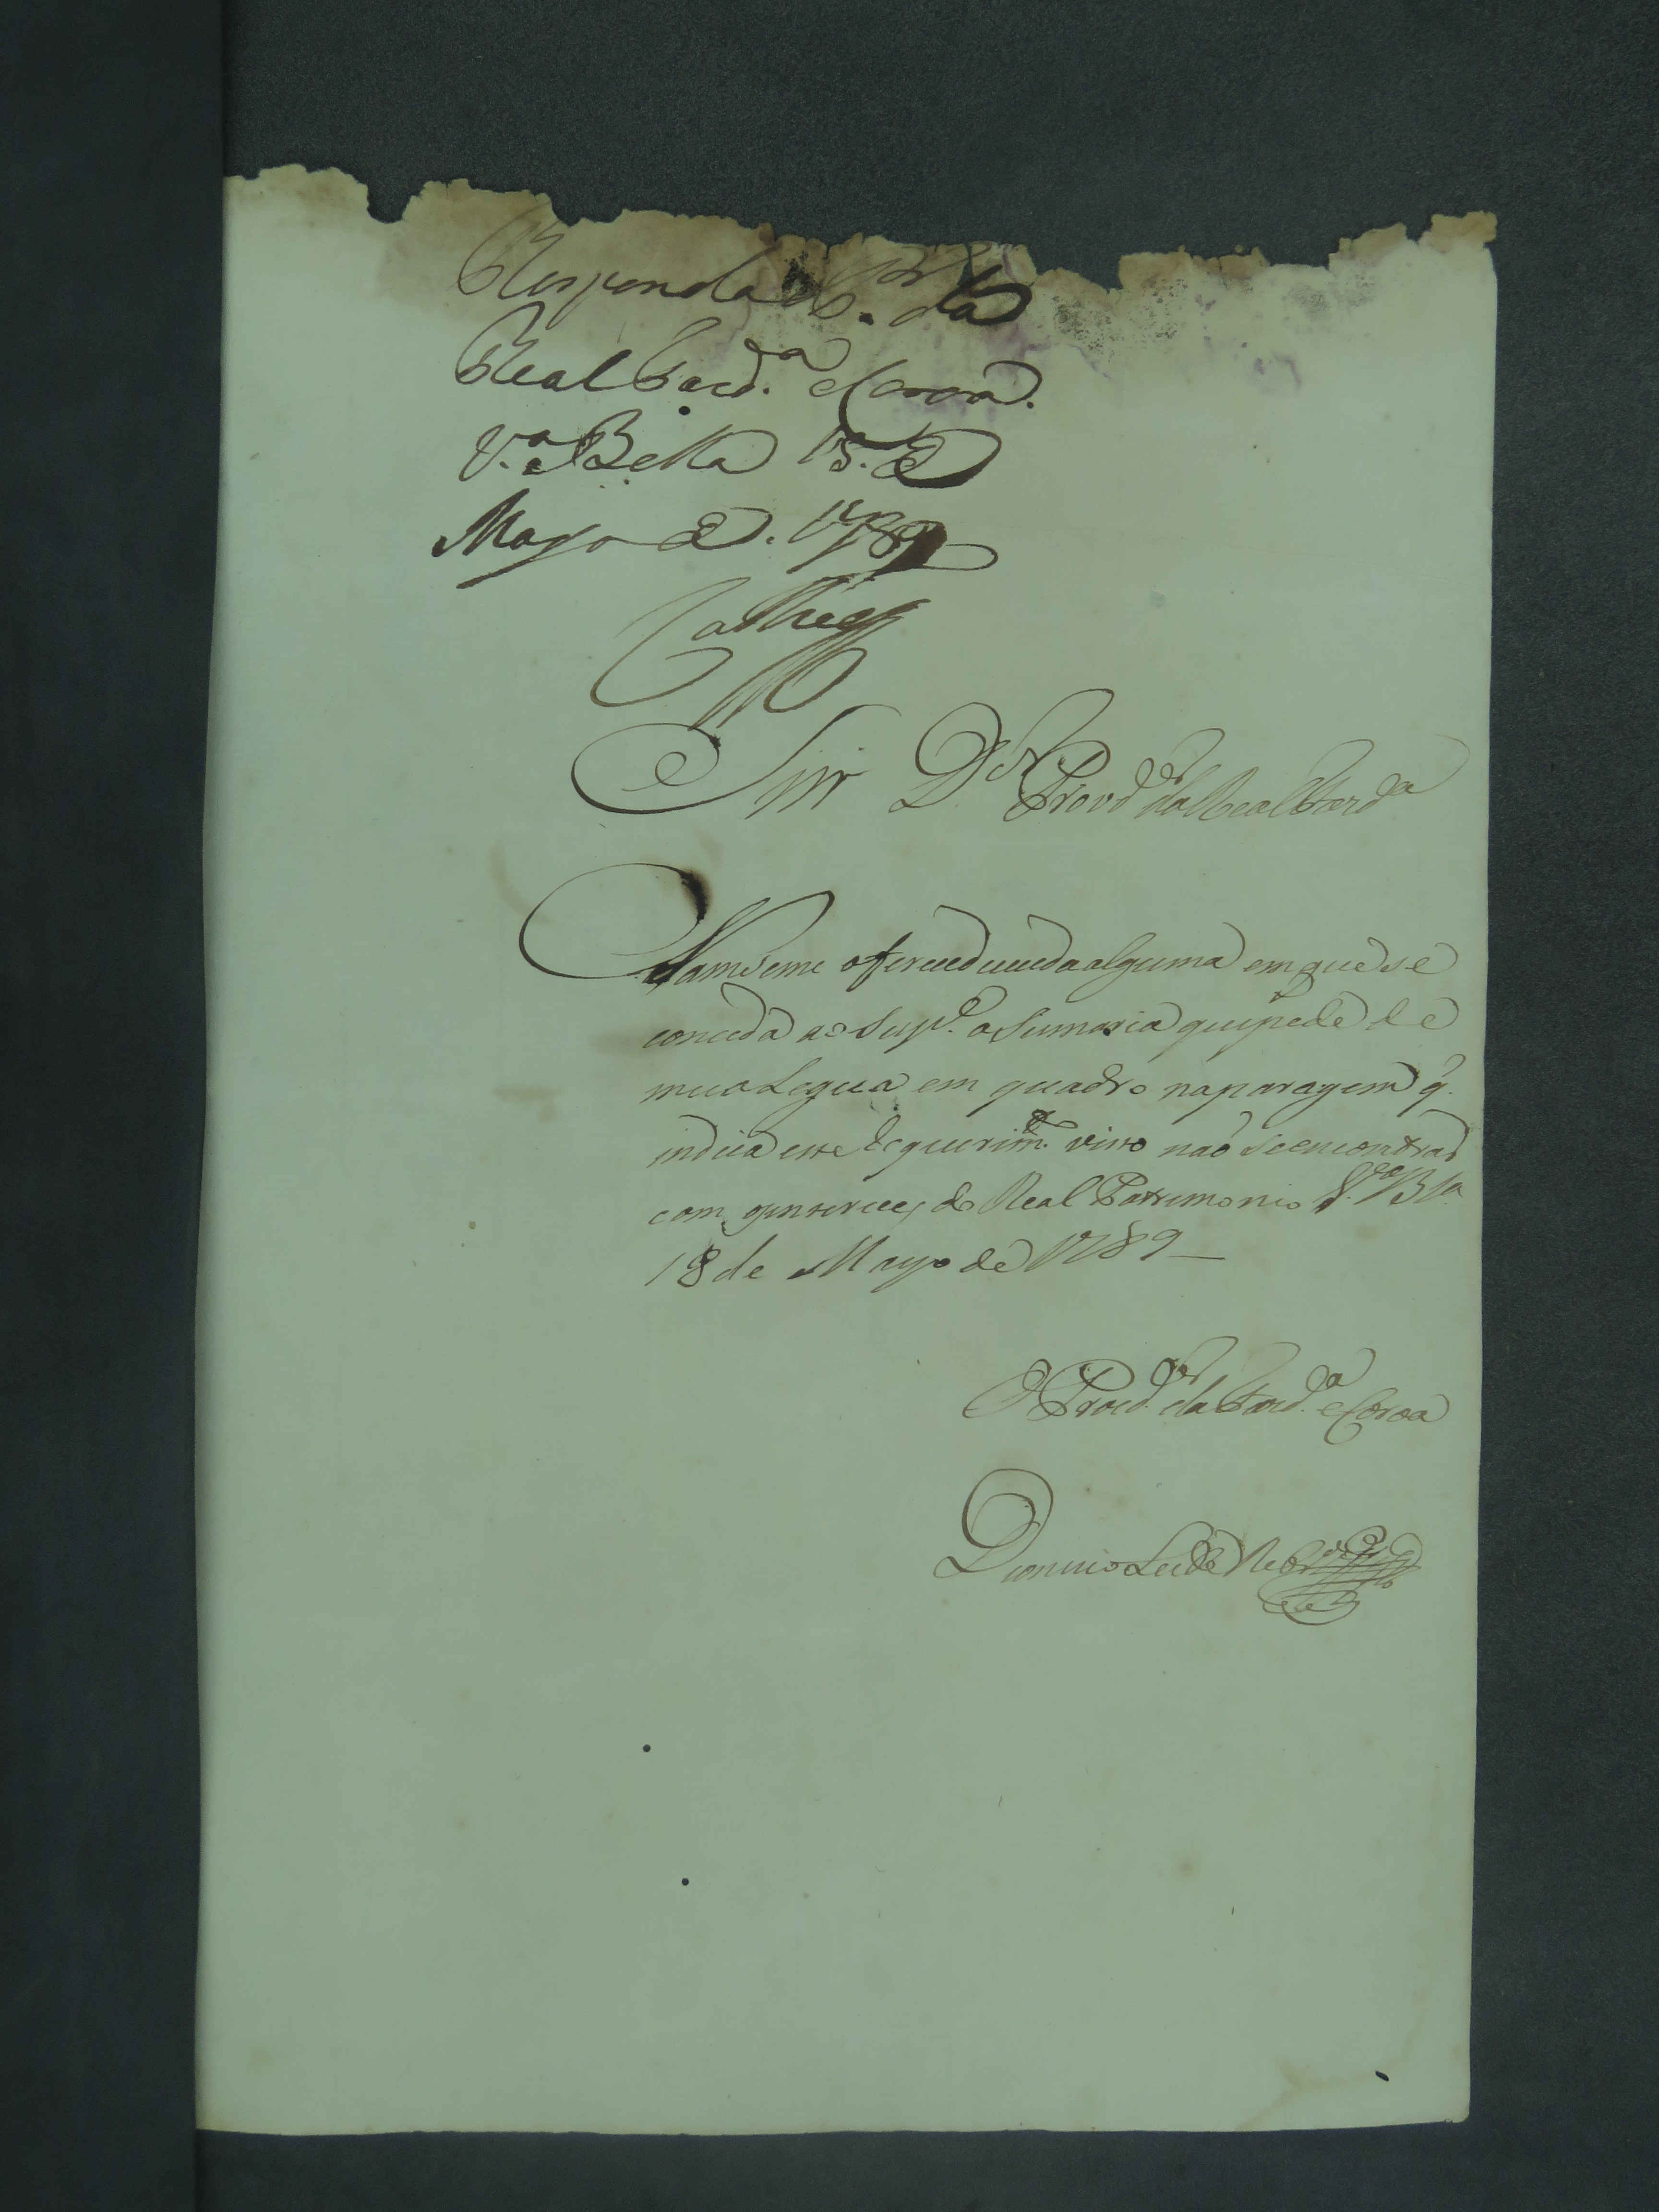 Responda o P.or da
Real Fazd.ª e Coroa.
V.ª Bella 15. de
Mayo de. 1789
Snr D.or Provd.or da Real Fazd.ª
Namseme oferece duvida alguma em que se
conceda ao Sup.e a Sismaria que pede de
mea Legua em quadro na paragem q.
indica este Requerim.to visto naõ se encontrar
com os enterece, do Real Patrimonio V.ª B.la
18 de Mayo de 1789
O Procd.or da Fazd.ª e Coroa